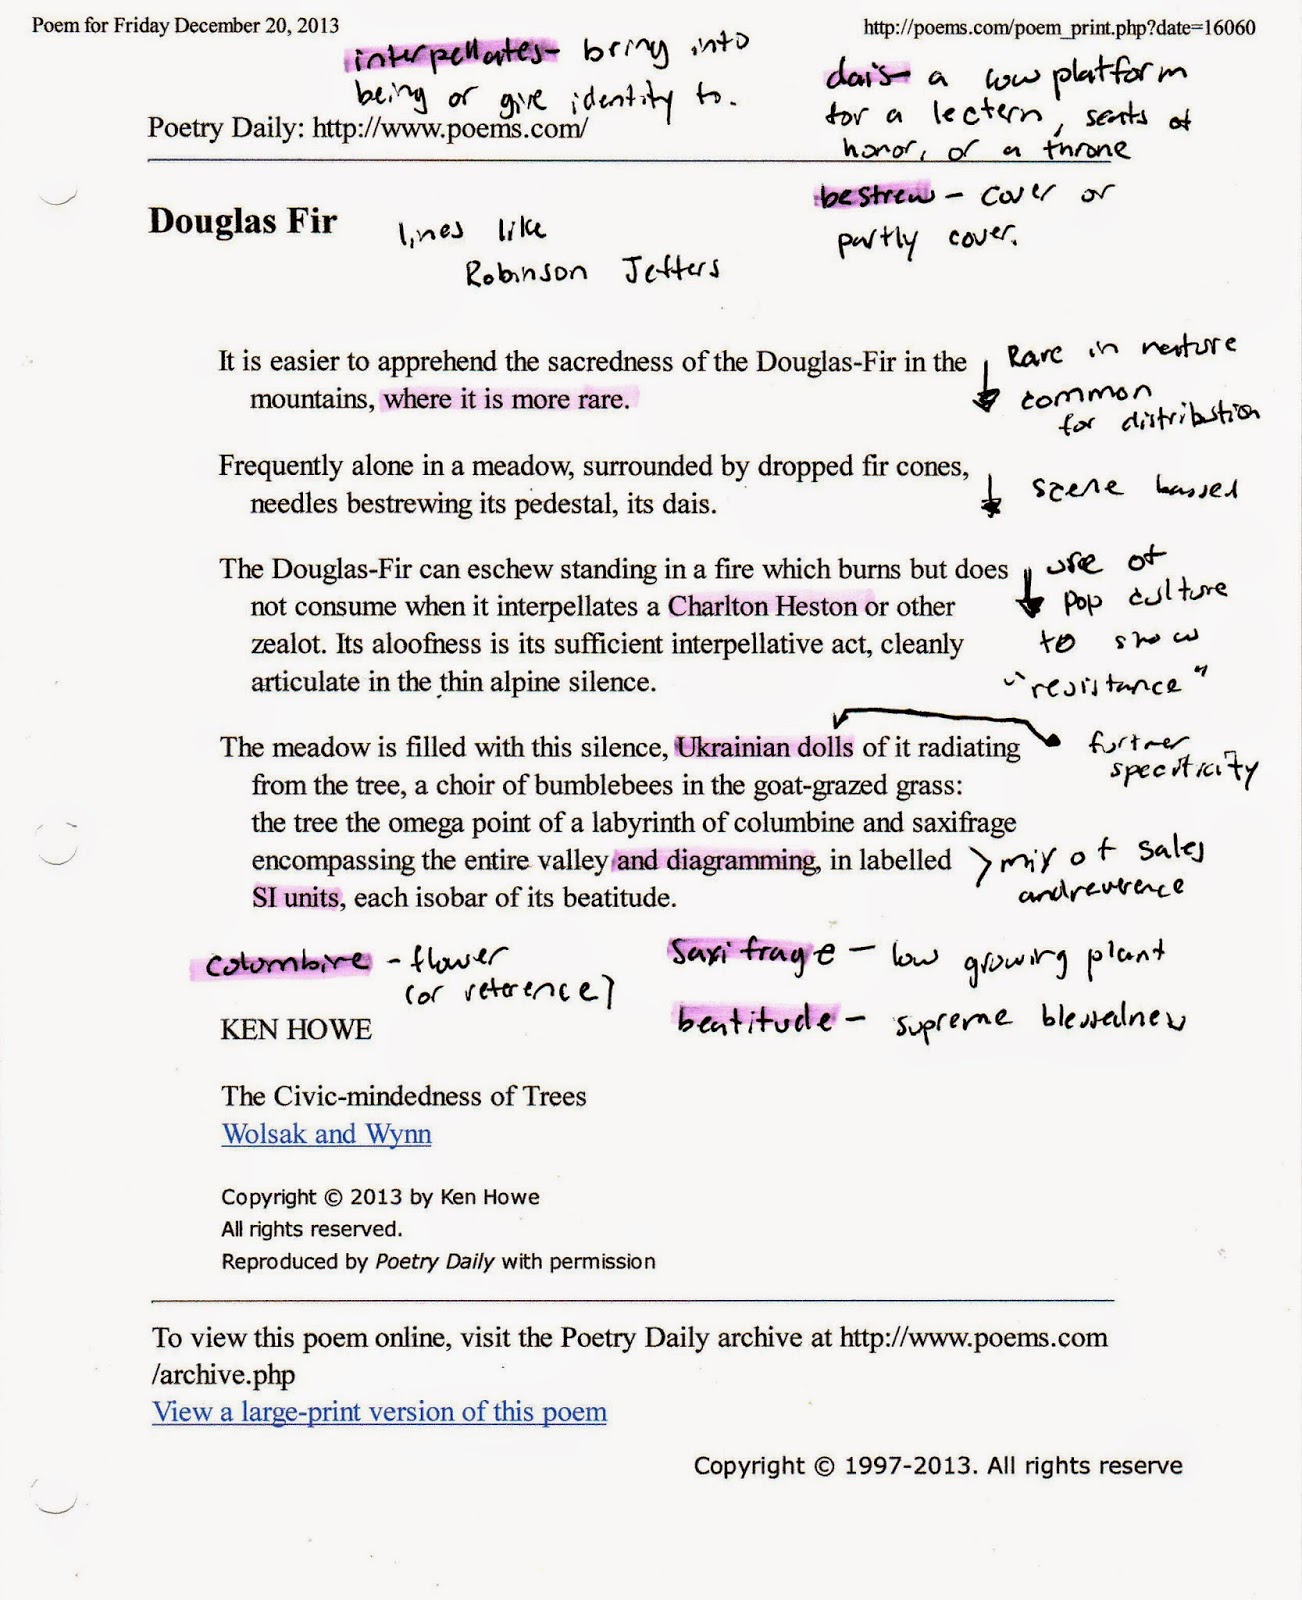 Poem for Friday December 20, 2013
http://poems.com/poem_print.php?date=16060
interpellates- bring into
being or give identity to.
dais- a low platform
for a lectern, seats of
honor, or a throne
Poetry Daily: http://www.poems.com/
bestrew - cover or
partly cover.
Douglas Fir
lines like
Robinson Jeffers
It is easier to apprehend the sacredness of the Douglas-Fir in the
mountains, where it is more rare.
Rare in nature
common
for distribution
Frequently alone in a meadow, surrounded by dropped fir cones,
needles bestrewing its pedestal, its dais.
scene bassed
The Douglas-Fir can eschew standing in a fire which burns but does
not consume when it interpellates a Charlton Heston or other
zealot. Its aloofness is its sufficient interpellative act, cleanly
articulate in the thin alpine silence.
use of
pop culture
to show
"resistance"
The meadow is filled with this silence, Ukrainian dolls of it radiating
from the tree, a choir of bumblebees in the goat-grazed grass:
the tree the omega point of a labyrinth of columbine and saxifrage
encompassing the entire valley and diagramming, in labelled
SI units, each isobar of its beatitude.
further
specificity
mix of sales
and reverence
columbine - flower
(or reference)
Saxifrage - low growing plant
beatitude - supreme blessedness
KEN HOWE
The Civic-mindedness of Trees
Wolsak and Wynn
Copyright © 2013 by Ken Howe
All rights reserved.
Reproduced by Poetry Daily with permission
To view this poem online, visit the Poetry Daily archive at http://www.poems.com
/archive.php
View a large-print version of this poem
Copyright © 1997-2013. All rights reserve